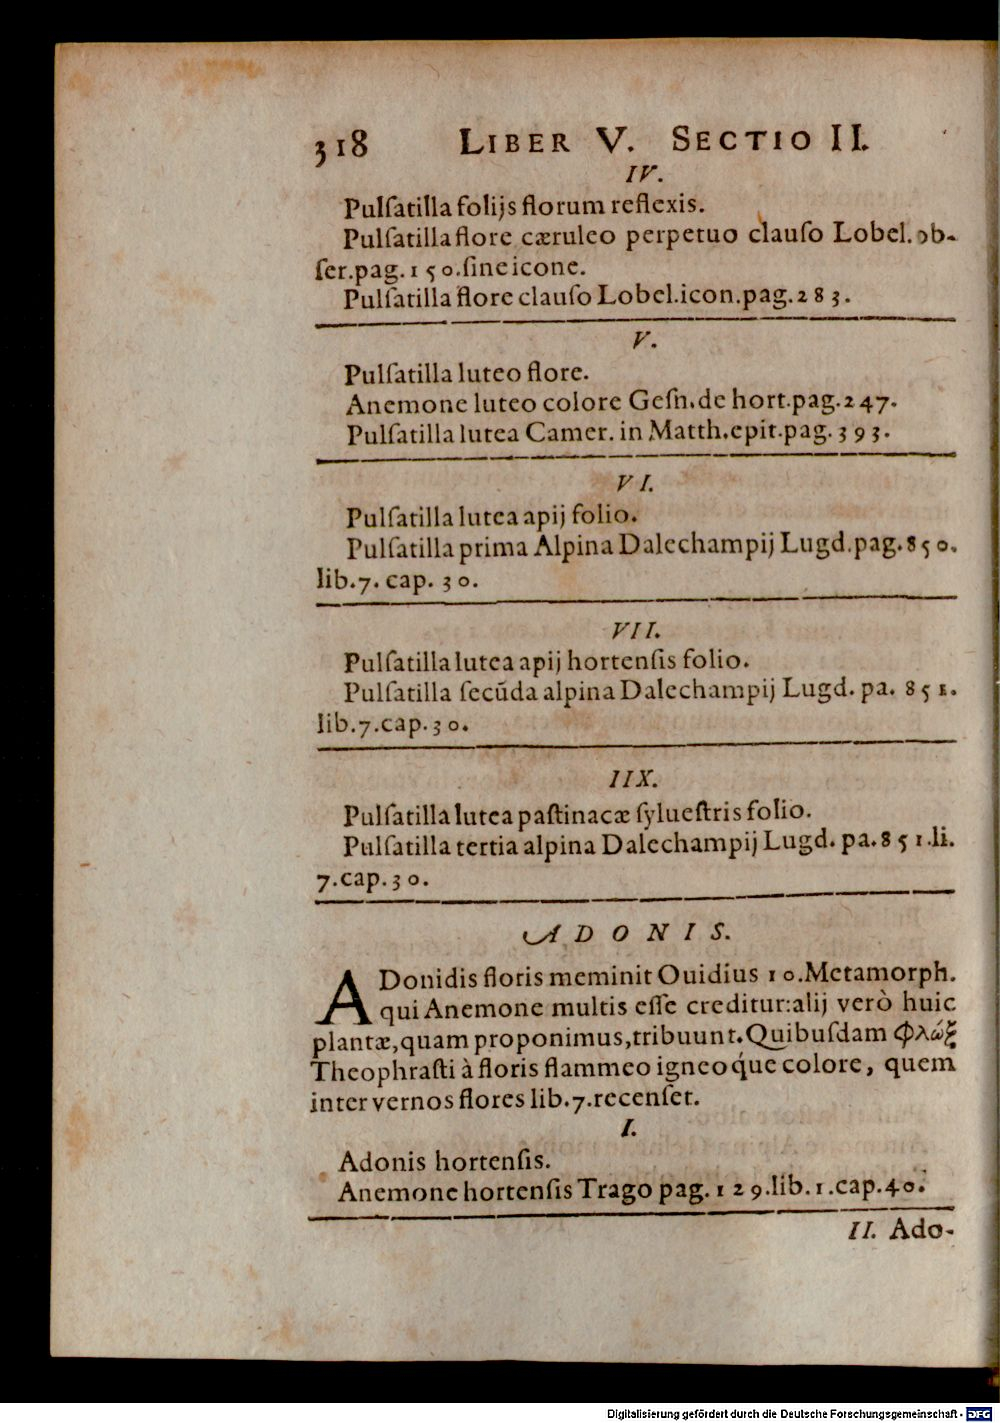 318 LIBER V. SECTIO II.
IV.
Pulſatilla folijs florum reflexis.
Pulſatilla flore cæruleo perpetuo clauſo Lobel. ob-
ſer.pag.150.ſine icone.
Pulſatilla flore clauſo Lobel.icon.pag.283.
V.
Pulſatilla luteo flore.
Anemone luteo colore Geſn.de hort.pag.247.
Pulſatilla lutea Camer. in Matth.epit.pag.393.
VI.
Pulſatilla lutea apij folio.
Pulſatilla prima Alpina Dalechampij Lugd.pag.850.
lib.7. cap. 30.
VII.
Pulſatilla lutea apij hortenſis folio.
Pulſatilla ſecūda alpina Dalechampij Lugd. pa. 851.
lib.7.cap.30.
IIX.
Pulſatilla lutea paſtinacæ ſylueſtris folio.
Pulſatilla tertia alpina Dalechampij Lugd. pa.851.li.
7.cap.30.
ADONIS.
ADonidis floris meminit Ouidius 10.Metamorph.
qui Anemone multis eſſe creditur:alij verò huic
plantæ,quam proponimus,tribuunt.Quibuſdam φλὼξ
Theophraſti à floris flammeo igneoq́ue colore, quem
inter vernos flores lib.7.recenſet.
I.
Adonis hortenſis.
Anemone hortenſis Trago pag.129.lib.1.cap.40.
II. Ado-
Digitalisierung gefördert durch die Deutsche Forschungsgemeinschaft - DFG